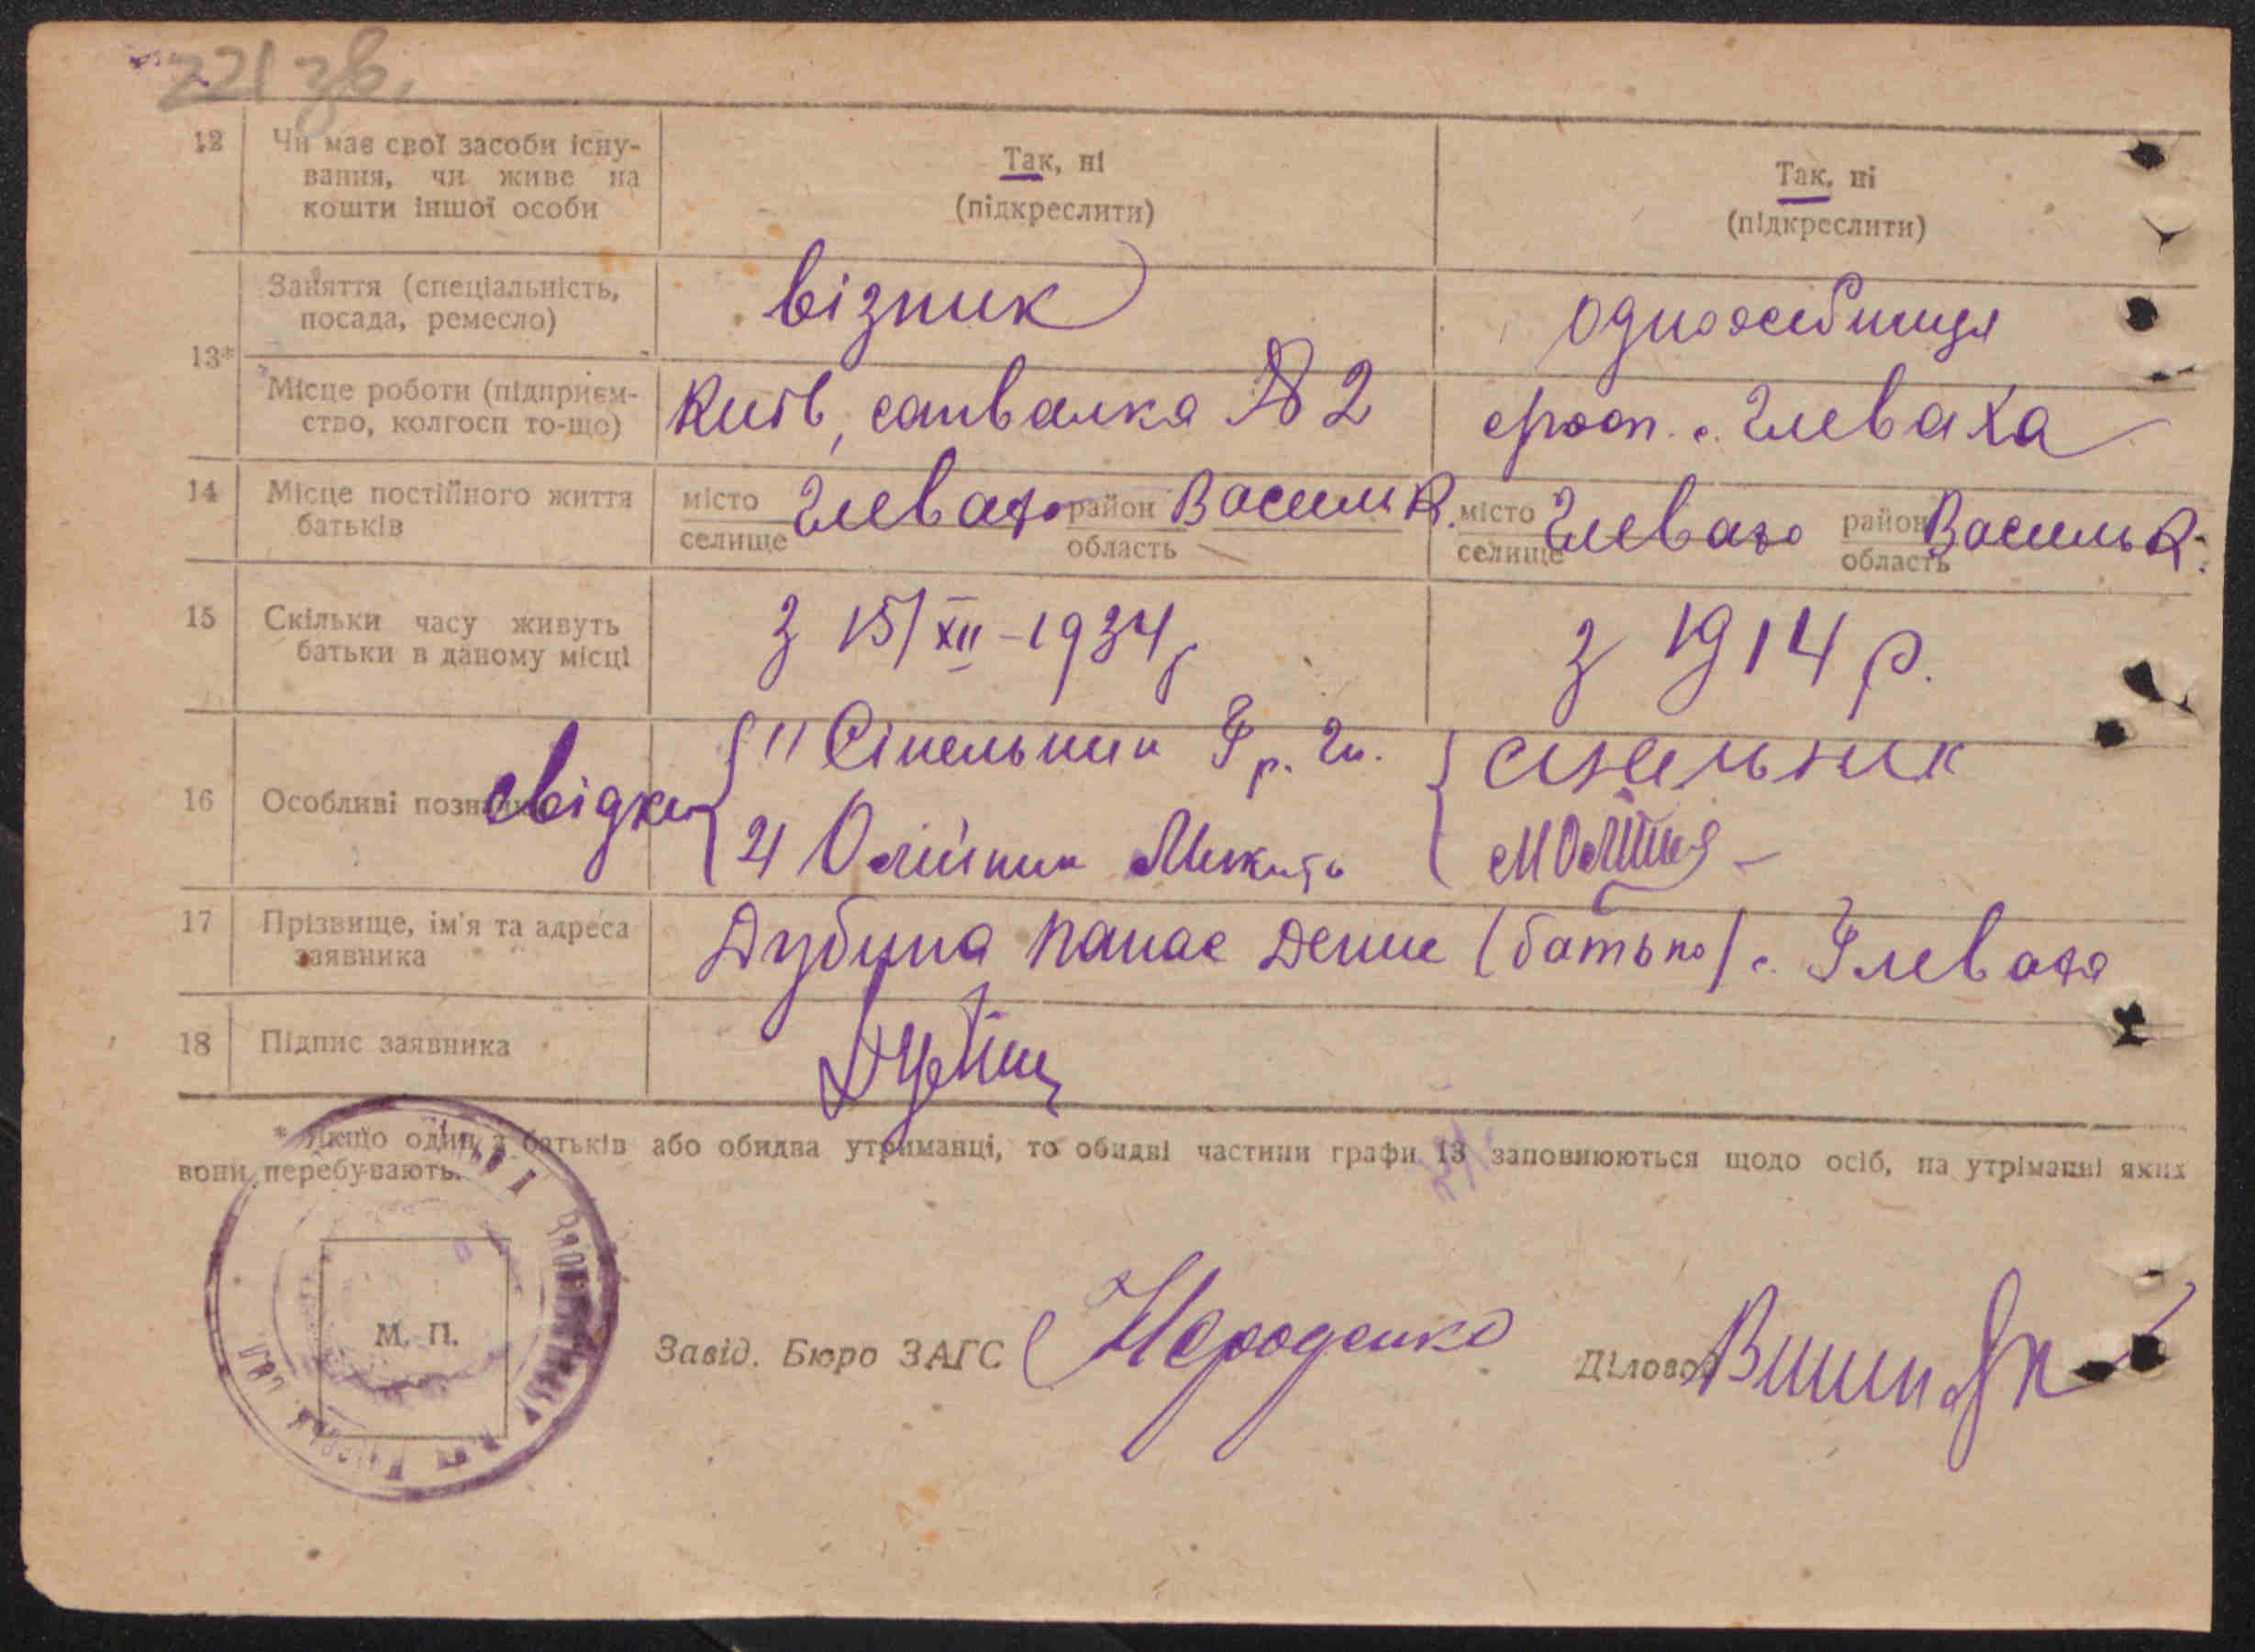 221 зв.
12 Чи має свої засоби існу-
вання, чи живе на
кошти іншої особи
Так, ні
(підкреслити)
Так, ні
(підкреслити)
13*
Заняття (спеціальність,
посада, ремесло)
візник
одноосібниця
Місце роботи (підприєм-
ство, колгосп то-що)
Київ, № 2
с. Глеваха
14 Місце постійного життя
батьків
місто
селище
Глеваха
район
область
Васильк.
місто
селище
Глеваха
район
область
Васильк.
15 Скільки часу живуть
батьки в даному місці
з 15/XII-1934р
з 1914 р.
16 Особливі позначки
свідки
1) Сінельник Гр. Гн.
2) Олійник Микита
синельник
17 Прізвище, ім'я та адреса
заявника
Дубина Панас Денис (батько) с. Глеваха
18 Підпис заявника
* Якщо один з батьків або обидва утриманці, то обидві частини графи 13 заповнюються щодо осіб, на утріманні яких
вони перебувають.
М. П.
Завід. Бюро ЗАГС
Діловод